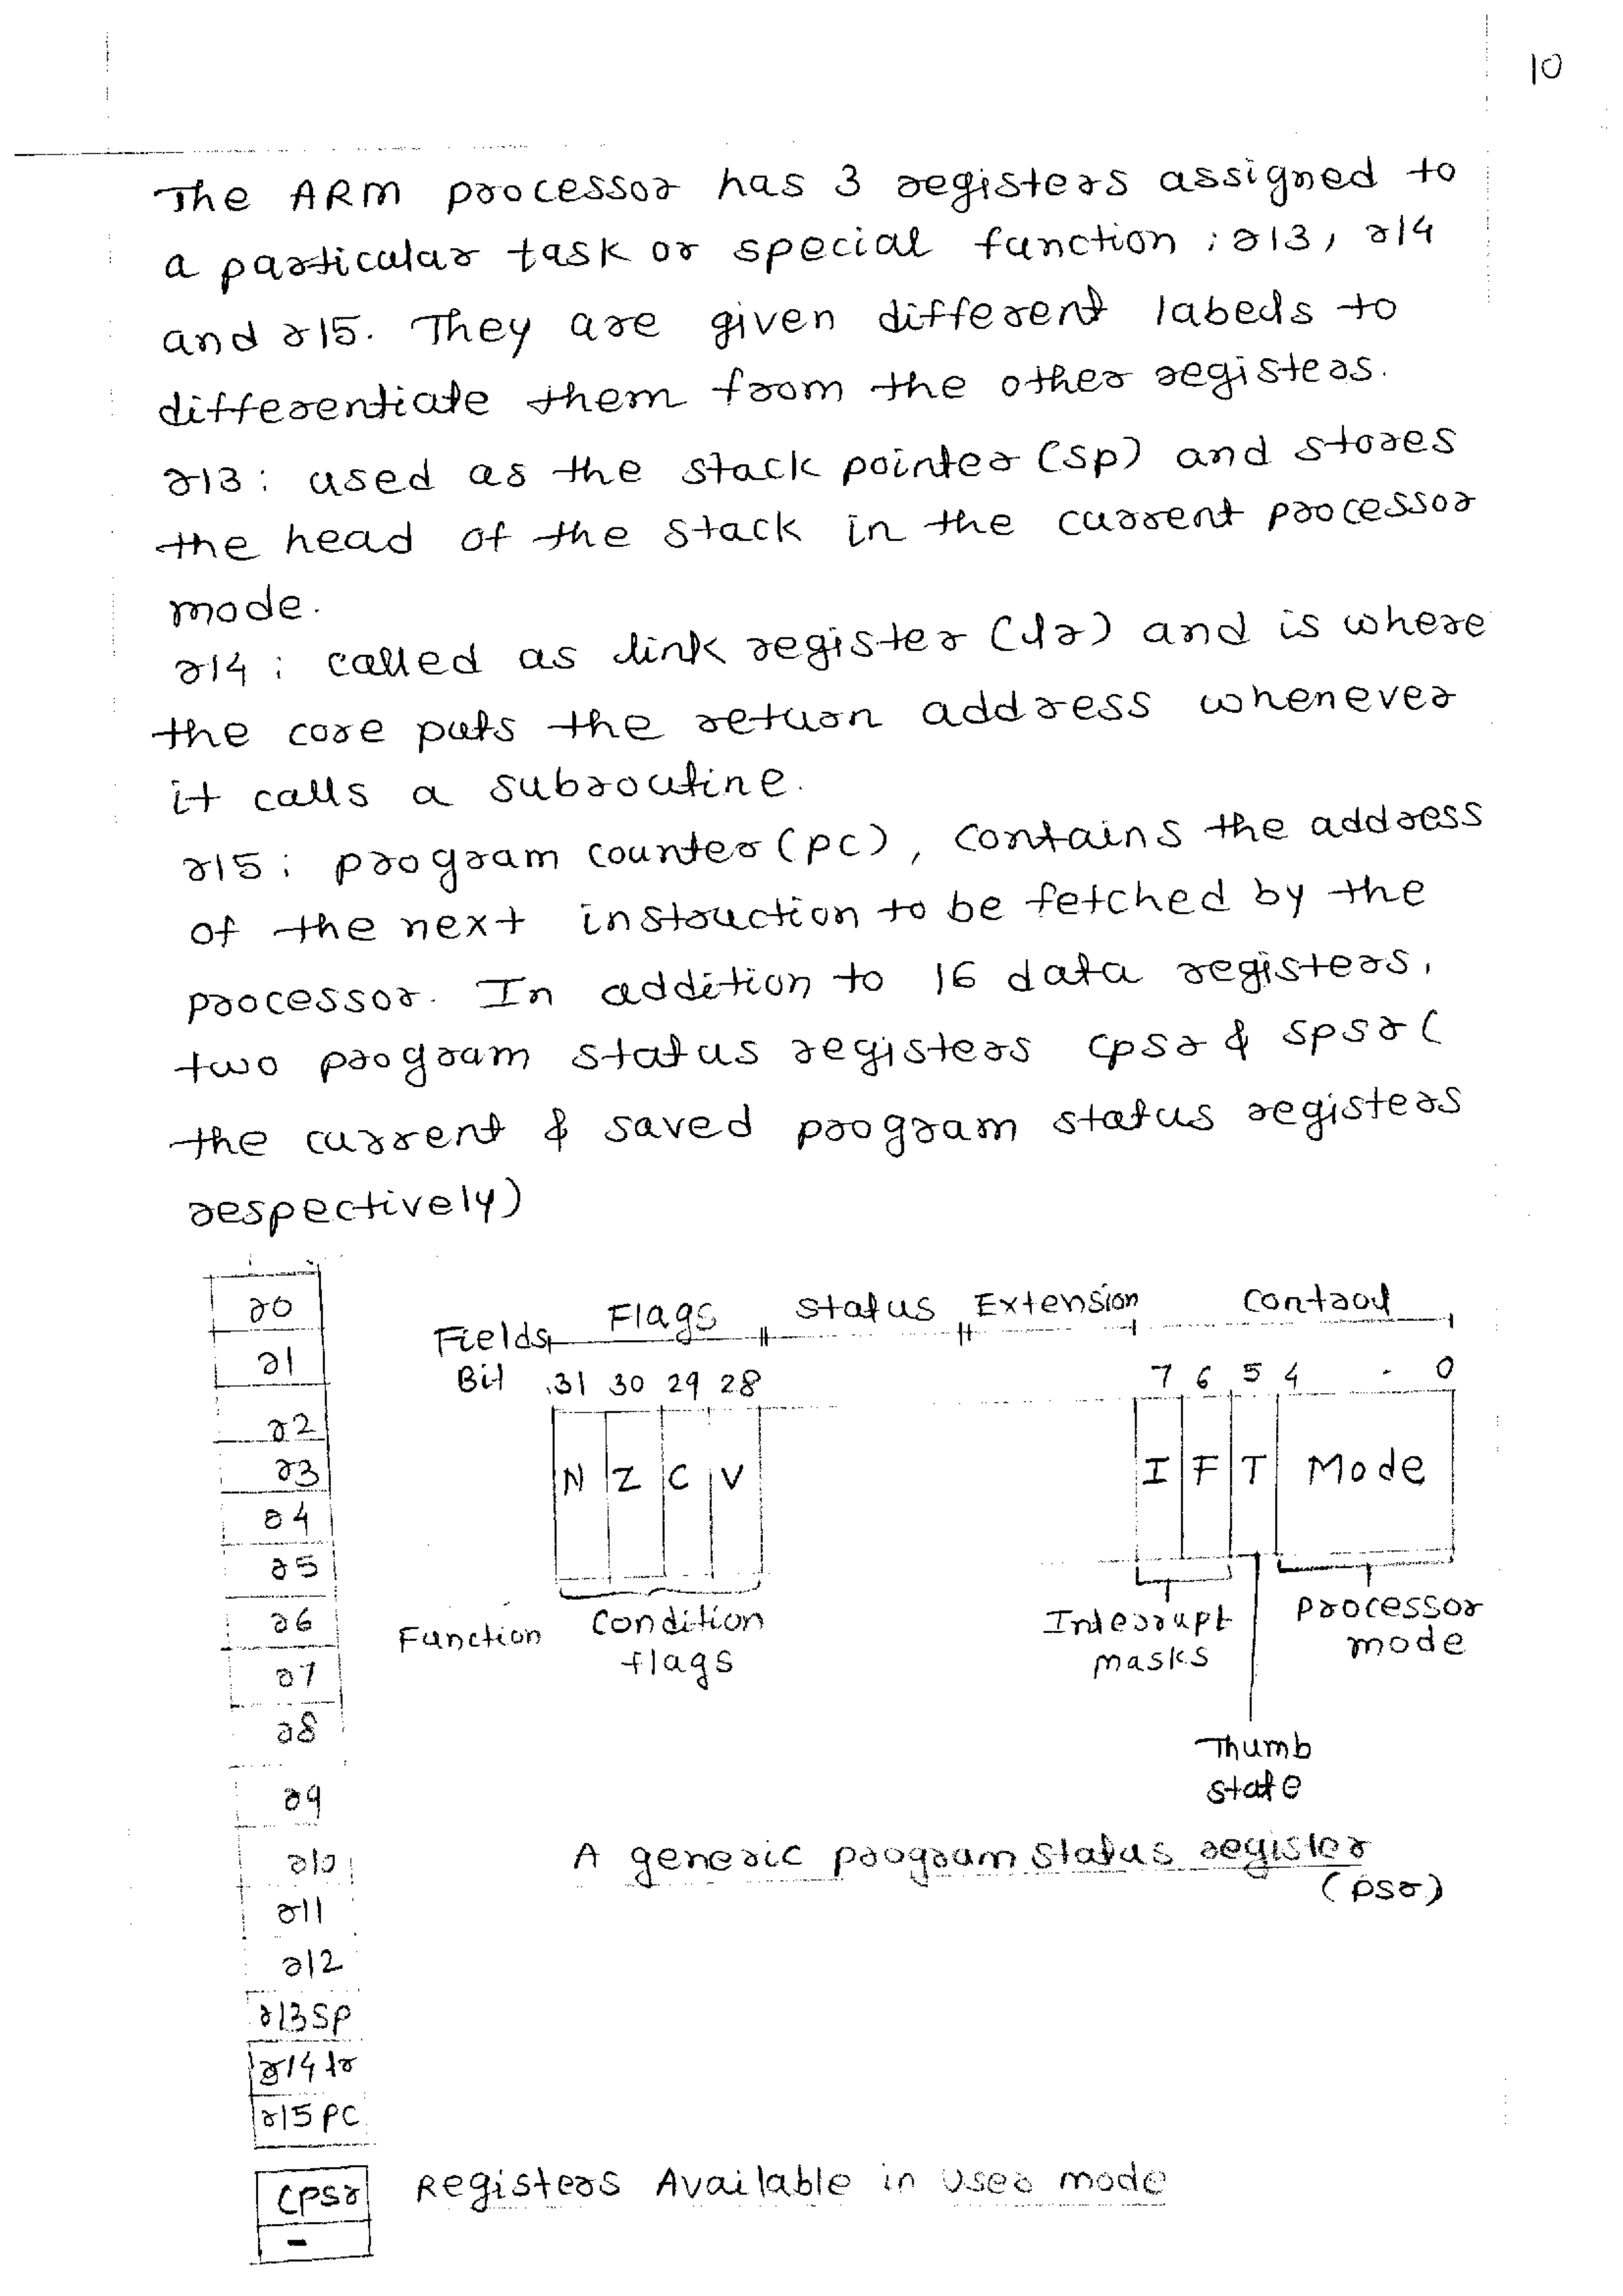 10
The ARM processor has 3 registers assigned to
a particular task or special function : r13, r14
and r15. They are given different labeds to
differentiate them from the other registers.
r13 : used as the stack pointer (sp) and stores
the head of the stack in the current processor
mode.
r14 : called as link register (lr) and is where
the core puts the return address whenever
it calls a subroutine.
r15 : program counter (pc), contains the address
of the next instruction to be fetched by the
processor. In addition to 16 data registers,
two program status registers cpsr & spsr (
the current & saved program status registers
respectively)
r0
r1
r2
r3
r4
r5
r6
r7
r8
r9
r10
r11
r12
r13 sp
r14 lr
r15 PC
Cpsr
-
Fields Flags Status Extension Control
Bit 31 30 29 28 7 6 5 4 - 0
N Z C V I F T Mode
Function Condition flags
Interrupt masks
Processor mode
Thumb state
A generic program status register
(psr)
Registers Available in user mode